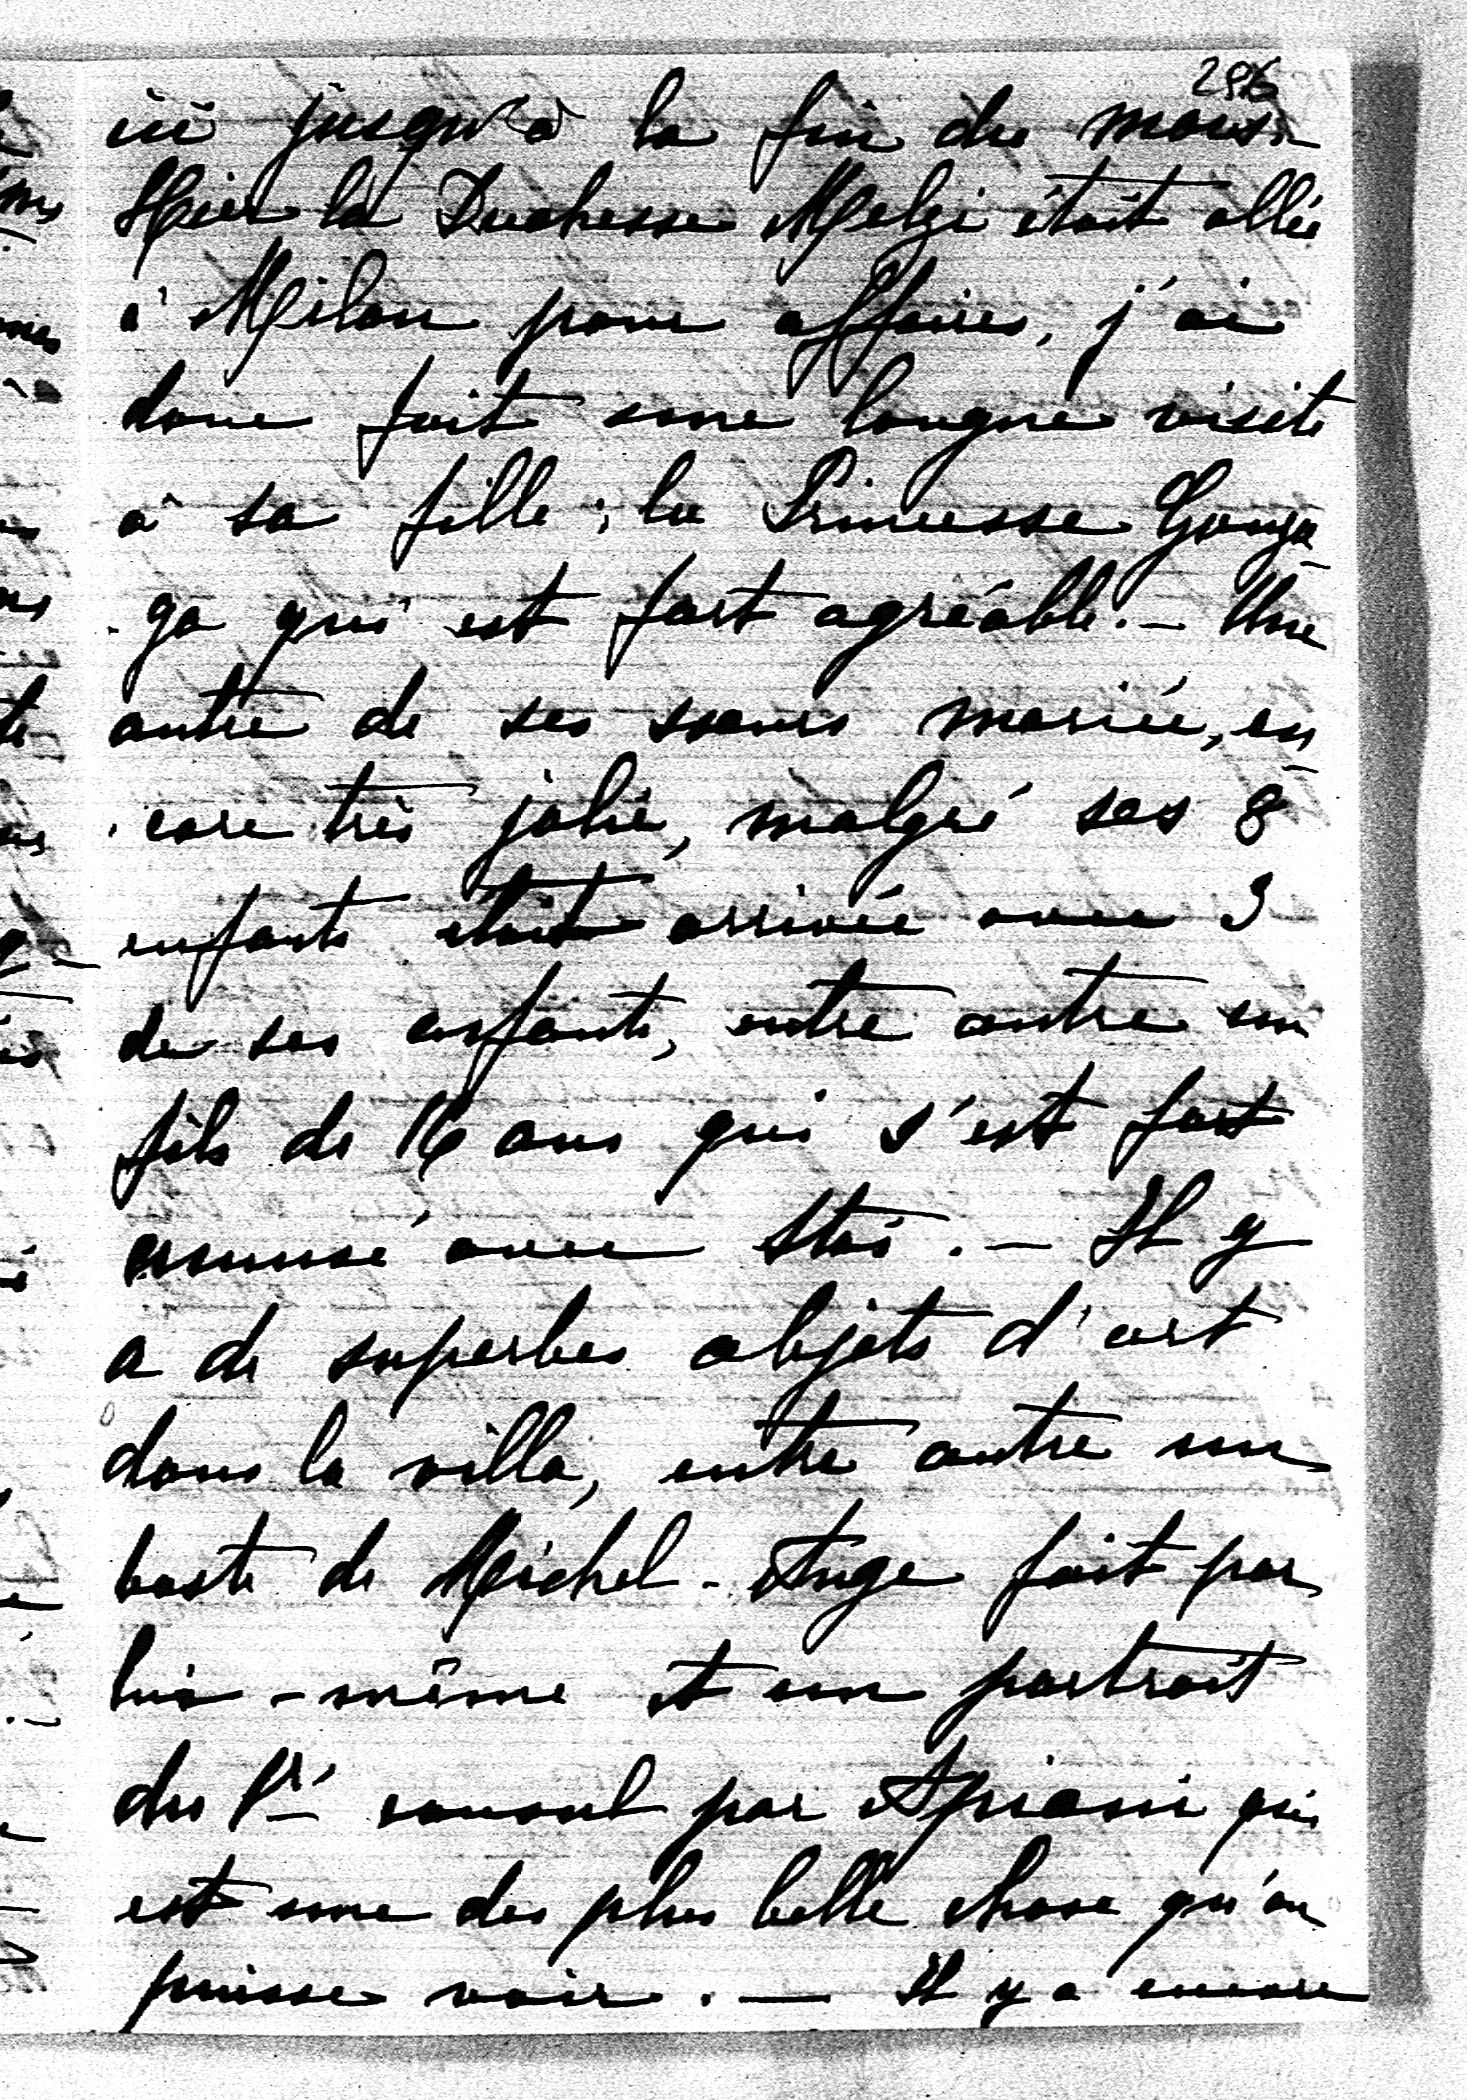 ici jusqu'à la fin du mois.
Hier la Duchesse Melzi était allée
à Milan pour affaires, j'ai
donc fait une longue visite
à sa fille, la Princesse Gonza-
-ga qui est fort agréable. – Une
autre de ses sœurs mariée, en-
-core très jolie, malgré ses 8
enfants était arrivée avec 3
de ses enfants, entre autre un
fils de 16 ans qui s'est fort
amusé avec Stoï. – Il y
a de superbes objets d'art
dans la villa, entre autre un
buste de Michel-Ange fait par
lui-même et un portrait
du 1er consul par Apiani qui
est une des plus belle chose qu'on
puisse voir. – Il y a encore